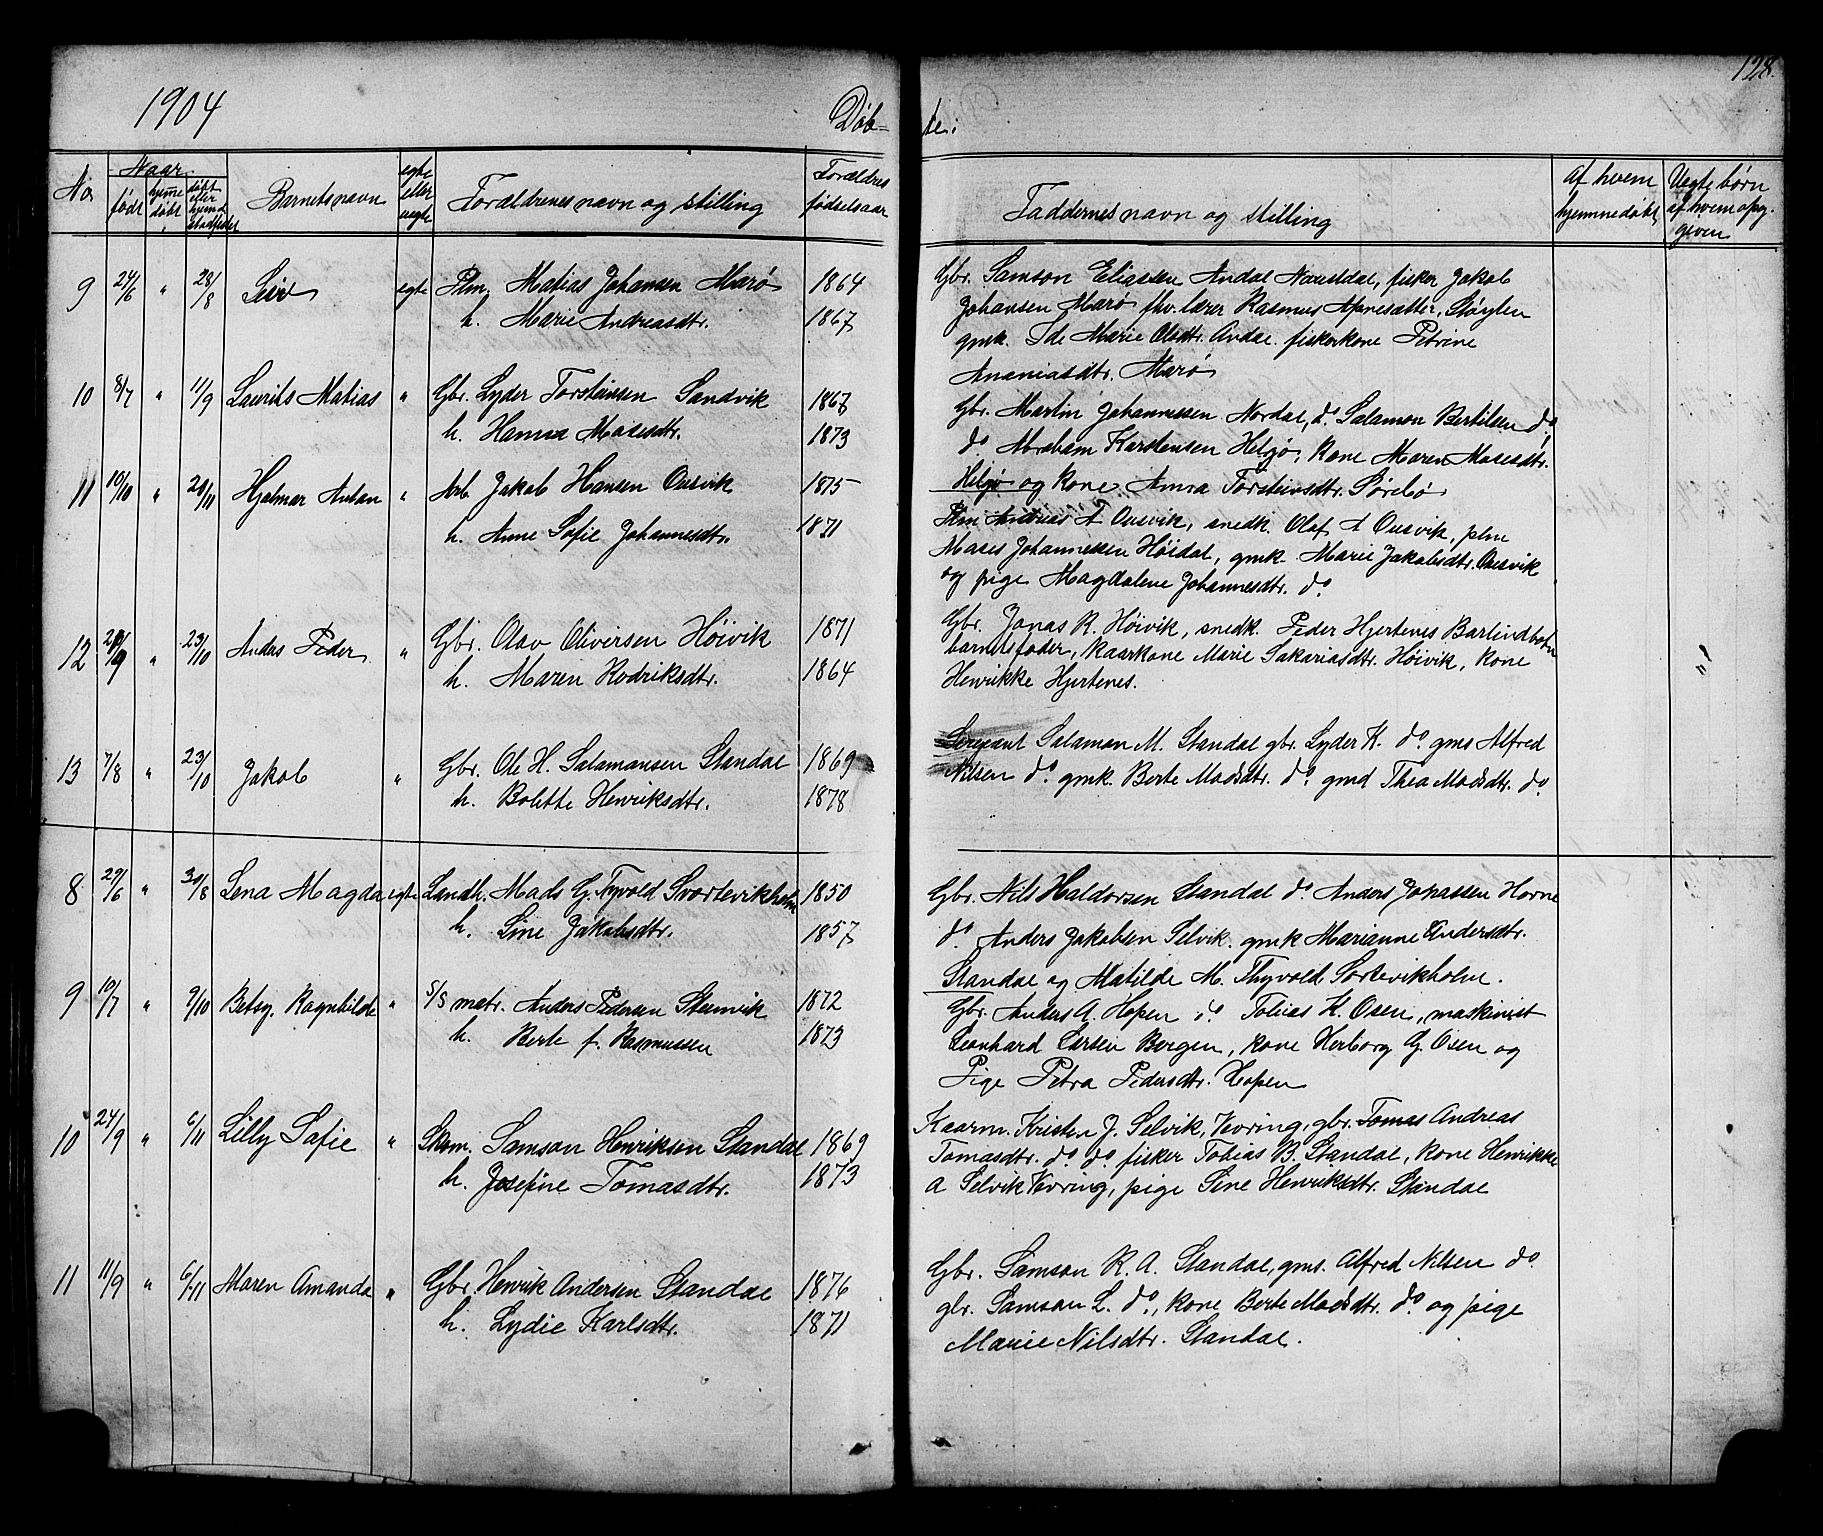 1904
Døb=
te:
128.
No
Naar
født
hjemme døbt
døbt eller hjemd. stadfestet
Barnets navn
egte eller uegte
Forældrenes navn og stilling
Forældres fødselsaar
Faddernes navn og stilling
Af hvem hjemmedøbt,
Uegte børn af hvem opg. given
9 24/6 " 28/8 Sivert egte Plm. Matias Johansen Marø 1864
h. Marie Andreasdtr. 1867
Gbr. Samson Eliassen Andal Naustdal, fisker Jakob
Johansen Marø fhv. lærer Rasmus Apnesætter, Støylen
gmk. Ide Marie Olsdtr. Andal. fiskerkone Petrine
Ananiasdtr. Marø
10 8/7 " 11/9 Laurits Matias " Gbr. Lyder Torsteinsen Sandvik 1867
h. Hanna Mosesdtr. 1873
Gbr. Martin Johannessen Nordal, do. Salamon Bertilsen do.
do Abraham Karstensen Helgø, Kone Maren Mosesdtr.
Helgø og Kone Anna Torsteinsdtr. Sørebø
11 10/10 " 20/11 Hjalmar Anton " Arb. Jakob Hansen Ousvik 1875
h. Anne Sofie Johannesdtr. 1871
Plm Andreas A Ousvik, snedk. Olaf A Ousvik, plm
Moses Johannessen Høidal, gmk. Marie Jakobsdtr. Ousvik
og pige Magdalene Johannesdtr. do
12 /9 " 23/10 Anders Peder " Gbr. Olav Oliversen Høivik 1871
h. Maren Rodriksdtr. 1864
Gbr. Jonas R. Høivik, snedk. Peder Hjertenes Barlindbotn
barnetsfader, Kaarkone Marie Sakariasdtr. Høivik, Kone
Henrikke Hjertenes.
"
13 7/8 " 23/10 Jakob " Gbr. Ole H. Salamonsen Standal 1869
h. Bolette Henriksdtr. 1878
Sergeant Salamon M. Standal gbr. Lyder K. do. gms Alfred
Nilsen do. gmk. Berte Madsdtr. do. gmd Thea Madsdtr. do.
8 29/6 " 30/8 Lena Magda egte Landh. Mads G. Tyvold Svortevikholm 1850
h. Line Jakobsdtr. 1857
Gbr. Nils Haldorsen Standal do Anders Johassen Horne
do. Anders Jakobsen Selvik. gmk Marianne Andersdtr.
Standal og Matilde M. Thyvold Sortevikholm.
9 10/7 " 9/10 Betsy Ragnhilde " S/S matr. Anders Pedersen Steinvik 1872
h. Berte f. Rasmussen 1873
Gbr. Anders A. Hopen do. Tobias K. Osen, maskinist
Leonhard Larsen Bergen, Kone Herborg G. Osen og
Pige Petra Pedersdtr. Hopen
10 24/9 " 6/11 Lilly Sofie " Skom. Samson Henriksen Standal 1869
h. Josefine Tomasdtr. 1873
Kaarm. Kristen J. Selvik, Vevring, gbr. Tomas Andreas
Tomasdtr. do. do. fisker Tobias B. Standal, Kone Henrikke
A Selvik Vevring, pige Sine Henriksdtr. Standal
11 11/9 " 6/11 Maren Amanda " Gbr. Henrik Andersen Standal 1876
h. Lydie Karlsdtr. 1871
Gbr. Samson R. A. Standal, gms. Alfred Nilsen do.
gbr. Samson L. do., Kone Berte Madsdtr. do og pige
Marie Nilsdtr. Standal.